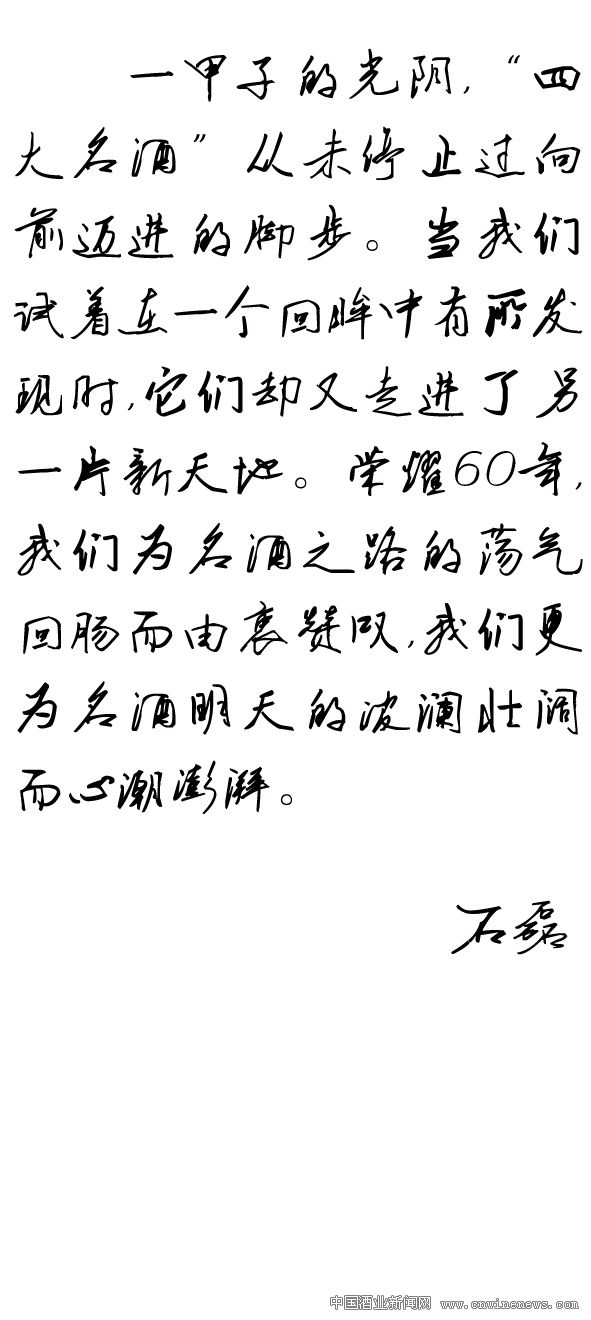 一甲子的光阴，“四
大名酒”从未停止过向
前迈进的脚步。当我们
试着在一个回眸中有所发
现时，它们却又走进了另
一片新天地。荣耀60年，
我们为名酒之路的荡气
回肠而由衷赞叹，我们更
为名酒明天的波澜壮阔
而心潮澎湃。
石磊
中国酒业新闻网 www.cnwinenews.com